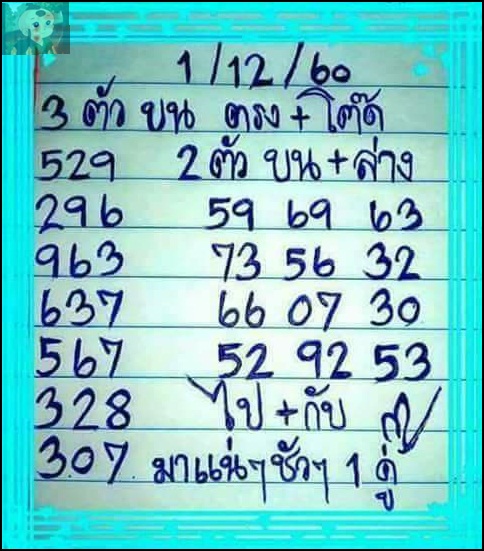 1/12/60
3 ตัว บน ตรง+โต๊ด
529 2 ตัว บน+ล่าง
296 59 69 63
963 73 56 32
637 66 07 30
567 52 92 53
328 ไป+กับ
307 มาแน่ๆชัวๆ 1 คู่